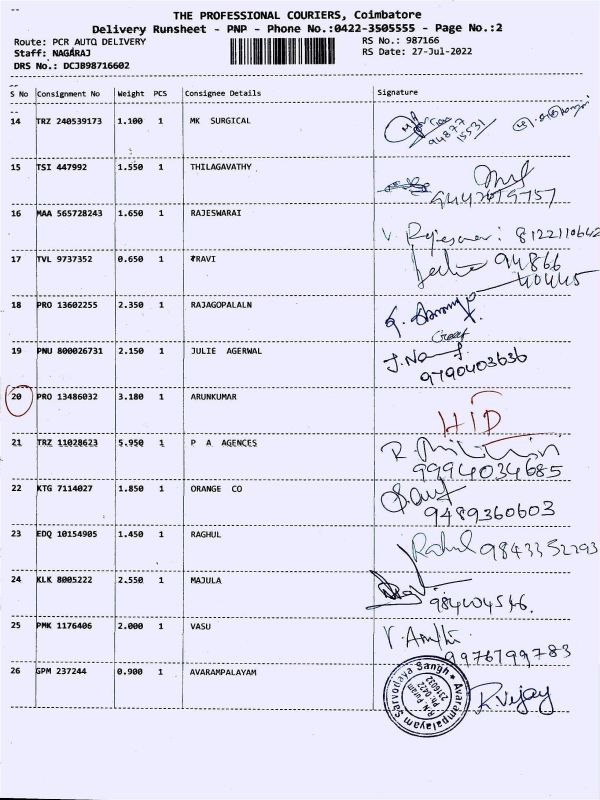 THE PROFESSIONAL COURIERS, Coimbatore
Delivery Runsheet - PNP - Phone No.:0422-3505555 - Page No.:2
Route: PCR AUTO DELIVERY RS No.: 987166
Staff: NAGARAJ RS Date: 27-Jul-2022
DRS No.: DCJB98716602
S No Consignment No Weight PCS Consignee Details Signature
14 TRZ 240539173 1.100 1 MK SURGICAL
94877
15531
15 TSI 447992 1.550 1 THILAGAVATHY
16 MAA 565728243 1.650 1 RAJESWARAI
8122110642
17 TVL 9737352 0.650 1 RAVI 94866
40445
18 PRO 13602255 2.350 1 RAJAGOPALALN
19 PNU 800026731 2.150 1 JULIE AGERWAL
9790403636
20 PRO 13486032 3.180 1 ARUNKUMAR
21 TRZ 11028623 5.950 1 P A AGENCES
9994034685
22 KTG 7114027 1.850 1 ORANGE CO
9489360603
23 EDQ 10154905 1.450 1 RAGHUL Rahul 9843352293
24 KLK 8005222 2.550 1 MAJULA
25 PMK 1176406 2.000 1 VASU
9976799783
26 GPM 237244 0.900 1 AVARAMPALAYAM R. Vijay
Avarampalayam Sarvodaya Sangh
R.N. Puram